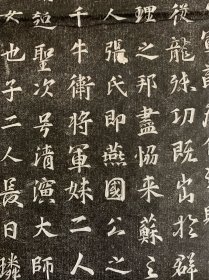 從龍殊功既出於群
理之邦盡協来蘇主
人張氏即燕國公之
千牛衛將軍妹二人
超聖次号清演大師
女也子二人長曰璘